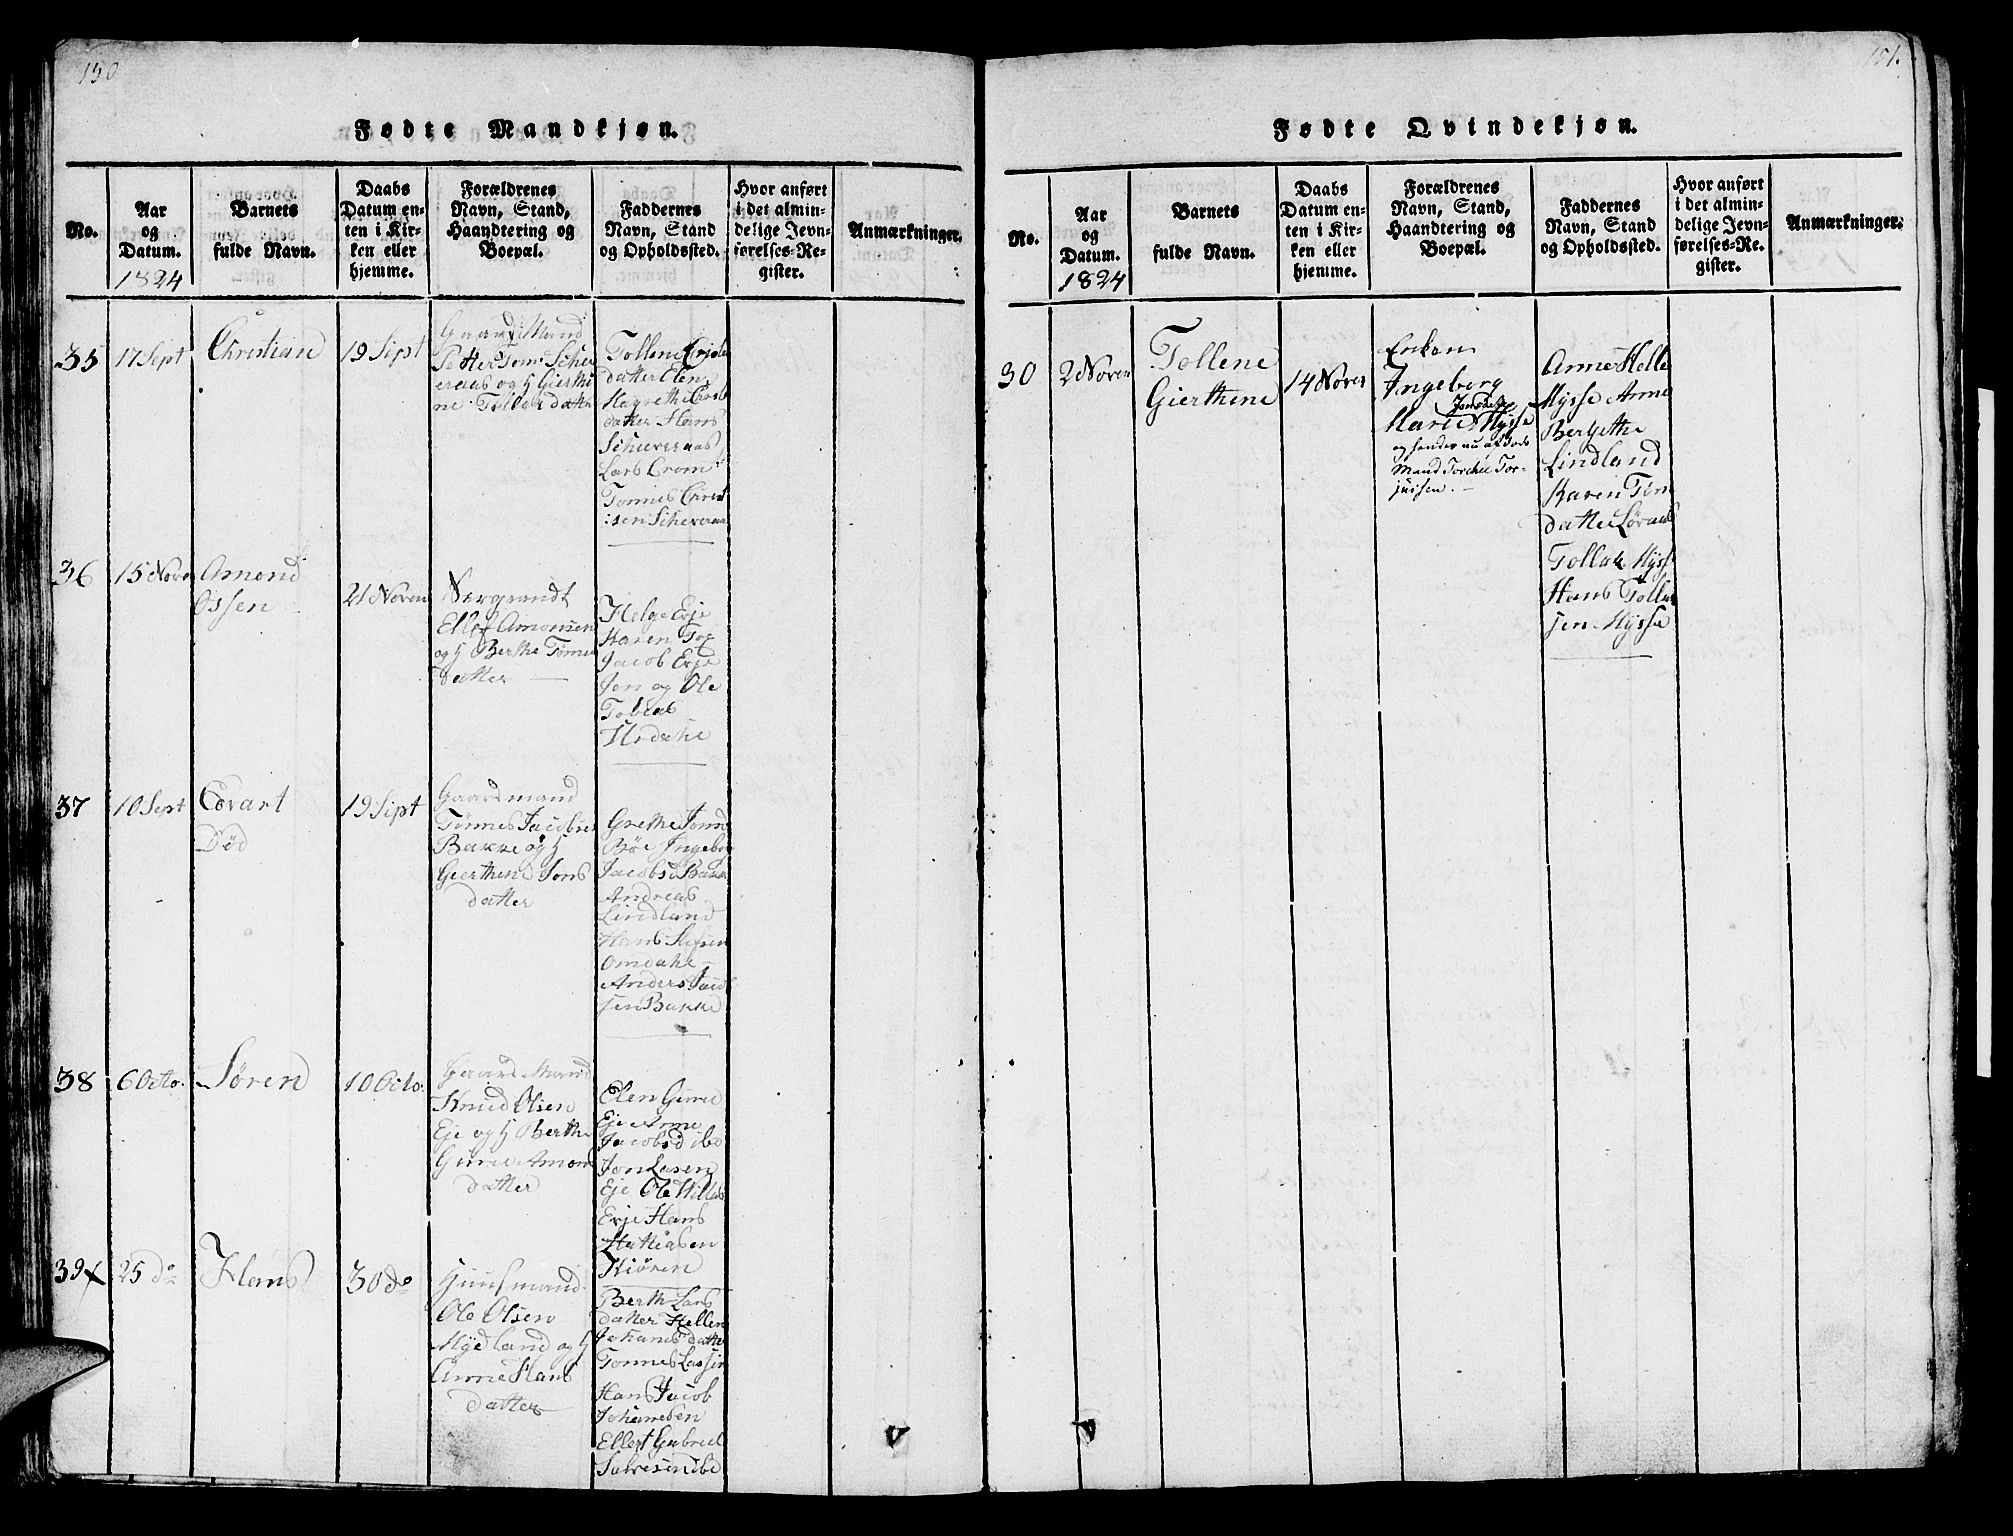 150
Fødte Mandkjøn.
No.
Aar
og
Datum.
1824
Barnets
fulde Navn.
Daabs
Datum en-
ten i Kir-
ken eller
hjemme.
Forældrenes
Navn, Stand,
Haandtering og
Boepæl.
Faddernes
Navn, Stand
og Opholdssted.
Hvor anført
i det almin-
delige Jevn-
førelses-Re-
gister.
Anmærkninger.
35
17 Sept
Christian
19 Sept
Gaard Mand
Petter Tom: Schev
eraas og H Gierthi
ne Tollax datte
Tollene
datter Elen
Magrethe
datter Hans
Scheveraas
Lars Crom
Tonnes Christ
:sen Scheveraas
36
15 Novem
Amond
Ossen
21 Novem
Nergrandt
Ellef Amonsen
og H Berthe Tønnes
datter
Helge Eeje
Karen
Jacob Eeje
Jon og Ole
Tobias
Hodahe
37
10 Sept
Edvart
Død
19 Sept
Gaardmand
Tønnes Jacobsen
Bakke og H
Gierthen Jons
datter
Grethe Jonsd
Bøe Ingeborg
Jacobsd Bakke
Andreas
Lindland
Hans
Omdahl
Anders Jacob
sen Bakke
38
6 Octo.
Søren
10 Octo.
Gaard Mand
Knud Olsen
Eje og H Berthe
Gurie Amond
datter
Elen Gurie
Eje Anne
Jacobsd ibd
Jon Lasen
Eje Ole
Eeje Hans
Mathiasen
Kiøren
39 x
25 do
Hans
30 do
Huusmand
Ole Olsen
Mydland og H
Anne Hans
datter
Berth Lars
datter Hellen
Johans datter
Tonnes Lassen
Hans Jacob
Johannesen
Ellert Gabriel
Salvesen ibd
151.
Fødte Qvindekjøn.
No.
Aar
og
Datum.
1824
Barnets
fulde Navn.
Daabs
Datum en-
ten i Kir-
ken eller
hjemme.
Forældrenes
Navn, Stand,
Haandtering og
Boepæl.
Faddernes
Navn, Stand
og Opholdssted.
Hvor anført
i det almin-
delige Jevn-
førelses-Re-
gister.
Anmærkninger.
30
2 Novem
Tollene
Gierthene
14 Novem
Enken
Ingeborg
Jonsdatter
Marie Mysse
og hendes nu af døde
Mand Torckil Tor-
juisen.
Anne Helle
Mysse Anne
Bergithe
Lindland
Karen Tøn
datter Løvaas
Tollak Mysse
Hans Tollak
sen Mysse